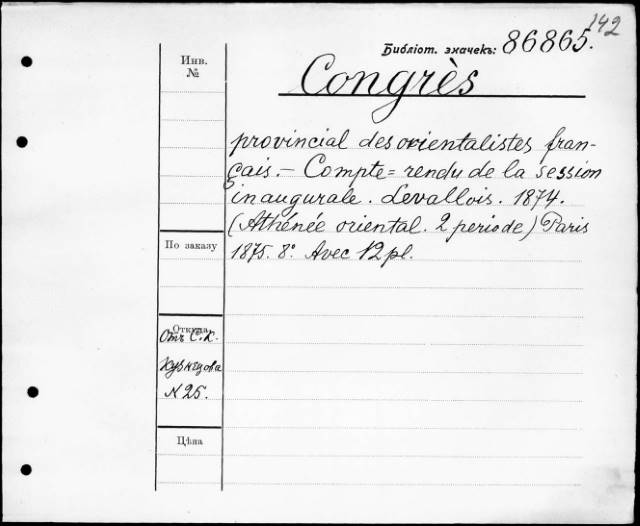 142
Библіот. значекъ: 86865.
Инв.
№
Congrès
provincial des orientalistes fran-
çais. — Compte=rendu de la session
inaugurale. Levallois. 1874.
(Athénée oriental. 2 periode) Paris
1875. 8°. Avec 12 pl.
По заказу
Откуда
Отъ С.К.
Кузнецова
N 25.
Цѣна